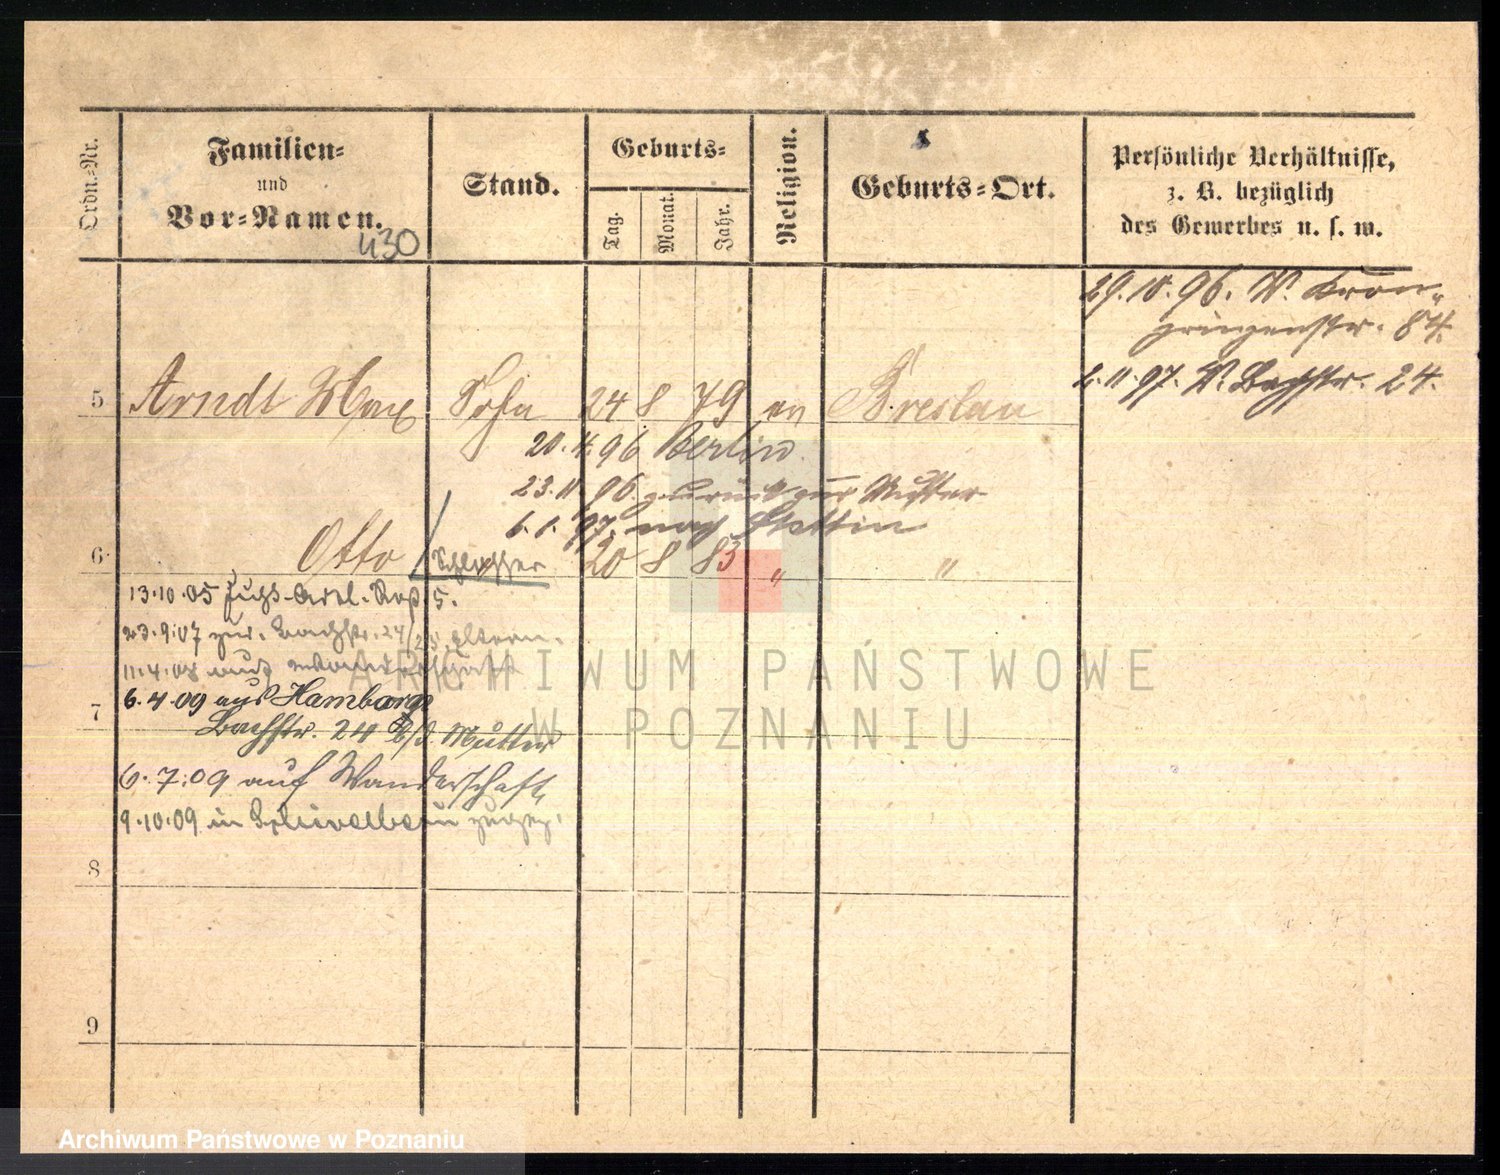 Ordn.-Nr.
Familien-
und
Vor-Namen.
430
Stand.
Geburts-
Tag.
Monat.
Jahr.
Religion.
Geburts-Ort.
Persönliche Verhältnisse,
z. B. bezüglich
des Gewerbes u. s. w.
29.10.96. W. Kron-
prinzenstr. 84.
2.11.97. W. Bachstr. 24.
5 Arndt Max Sohn 24 8 79 ev Breslau
20.4.96 Berlin.
23.11.96. zurück zur Mutter
6.1.97. nach Stettin
6 Otto Schlosser 20 8 83 " "
13.10.05 5.
23.9.07 zur. Bachstr. 24 Eltern.
11.4.08 auf Wanderschaft
6.4.09 aus Hamburg
7
Bachstr. 24 b/d. Mutter
6.7.09 auf Wanderschaft
9.10.09 in
8
9
ARCHIWUM PAŃSTWOWE
W POZNANIU
Archiwum Państwowe w Poznaniu